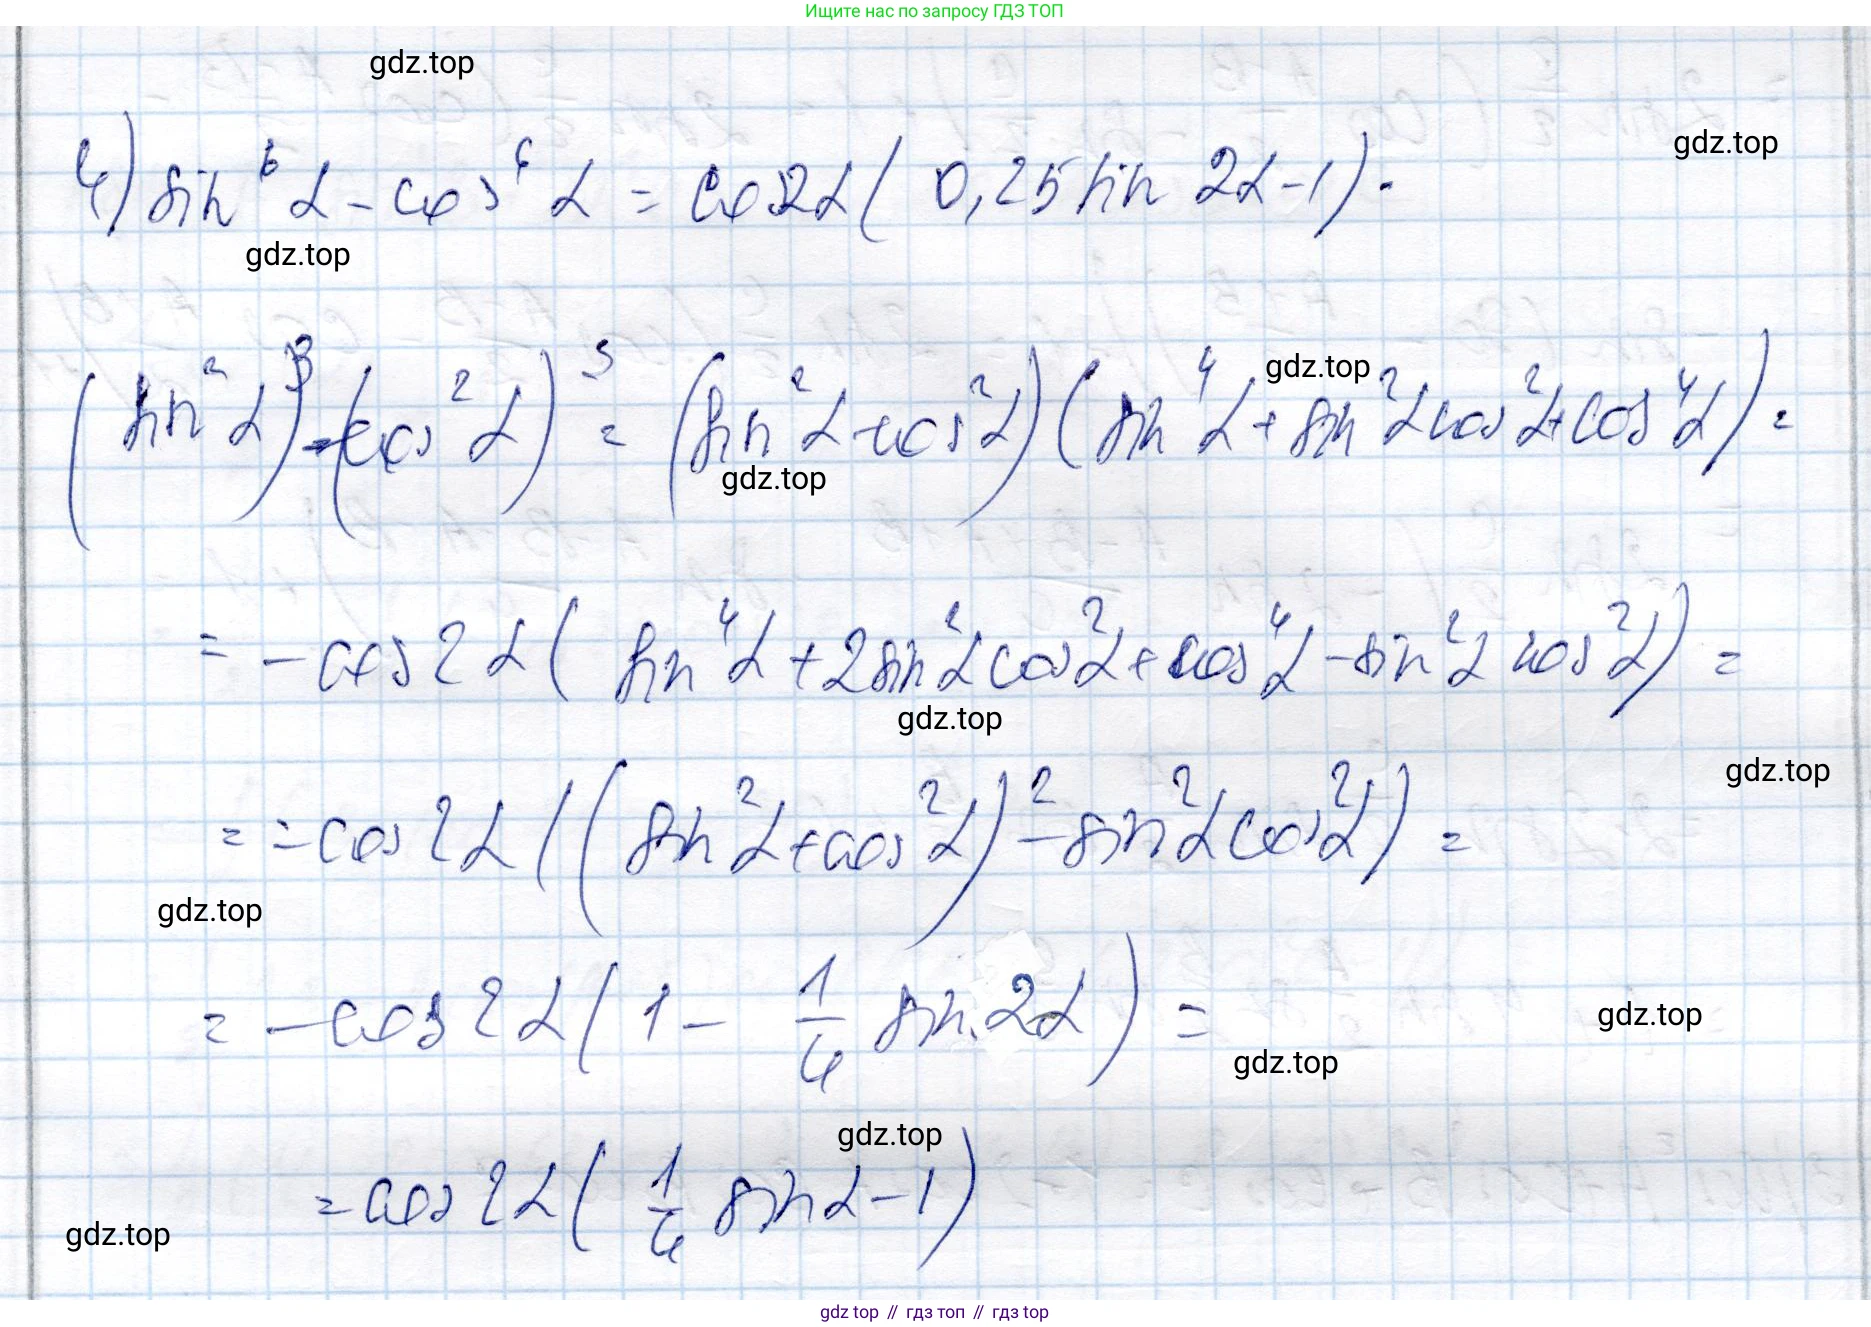 Ищите нас по запросу ГДЗ ТОП
gdz.top
4) sin⁶ α - cos⁶ α = cos2α ( 0,25 sin 2α - 1 ) .
gdz.top
gdz.top
(sin² α)³ - (cos² α)³ = (sin² α - cos² α) (sin⁴ α + sin² α cos² α + cos⁴ α) =
gdz.top
gdz.top
= - cos 2 α ( sin⁴ α + 2 sin² α cos² α + cos⁴ α - sin² α cos² α ) =
gdz.top
gdz.top
= = cos 2 α ( ( sin² α + cos² α )² - sin² α cos² α ) =
gdz.top
= - cos 2 α ( 1 - 1/4 sin 2α ) =
gdz.top
gdz.top
gdz.top
= cos 2 α ( 1/4 sin α - 1 )
gdz.top
gdz top // гдз топ // гдз top